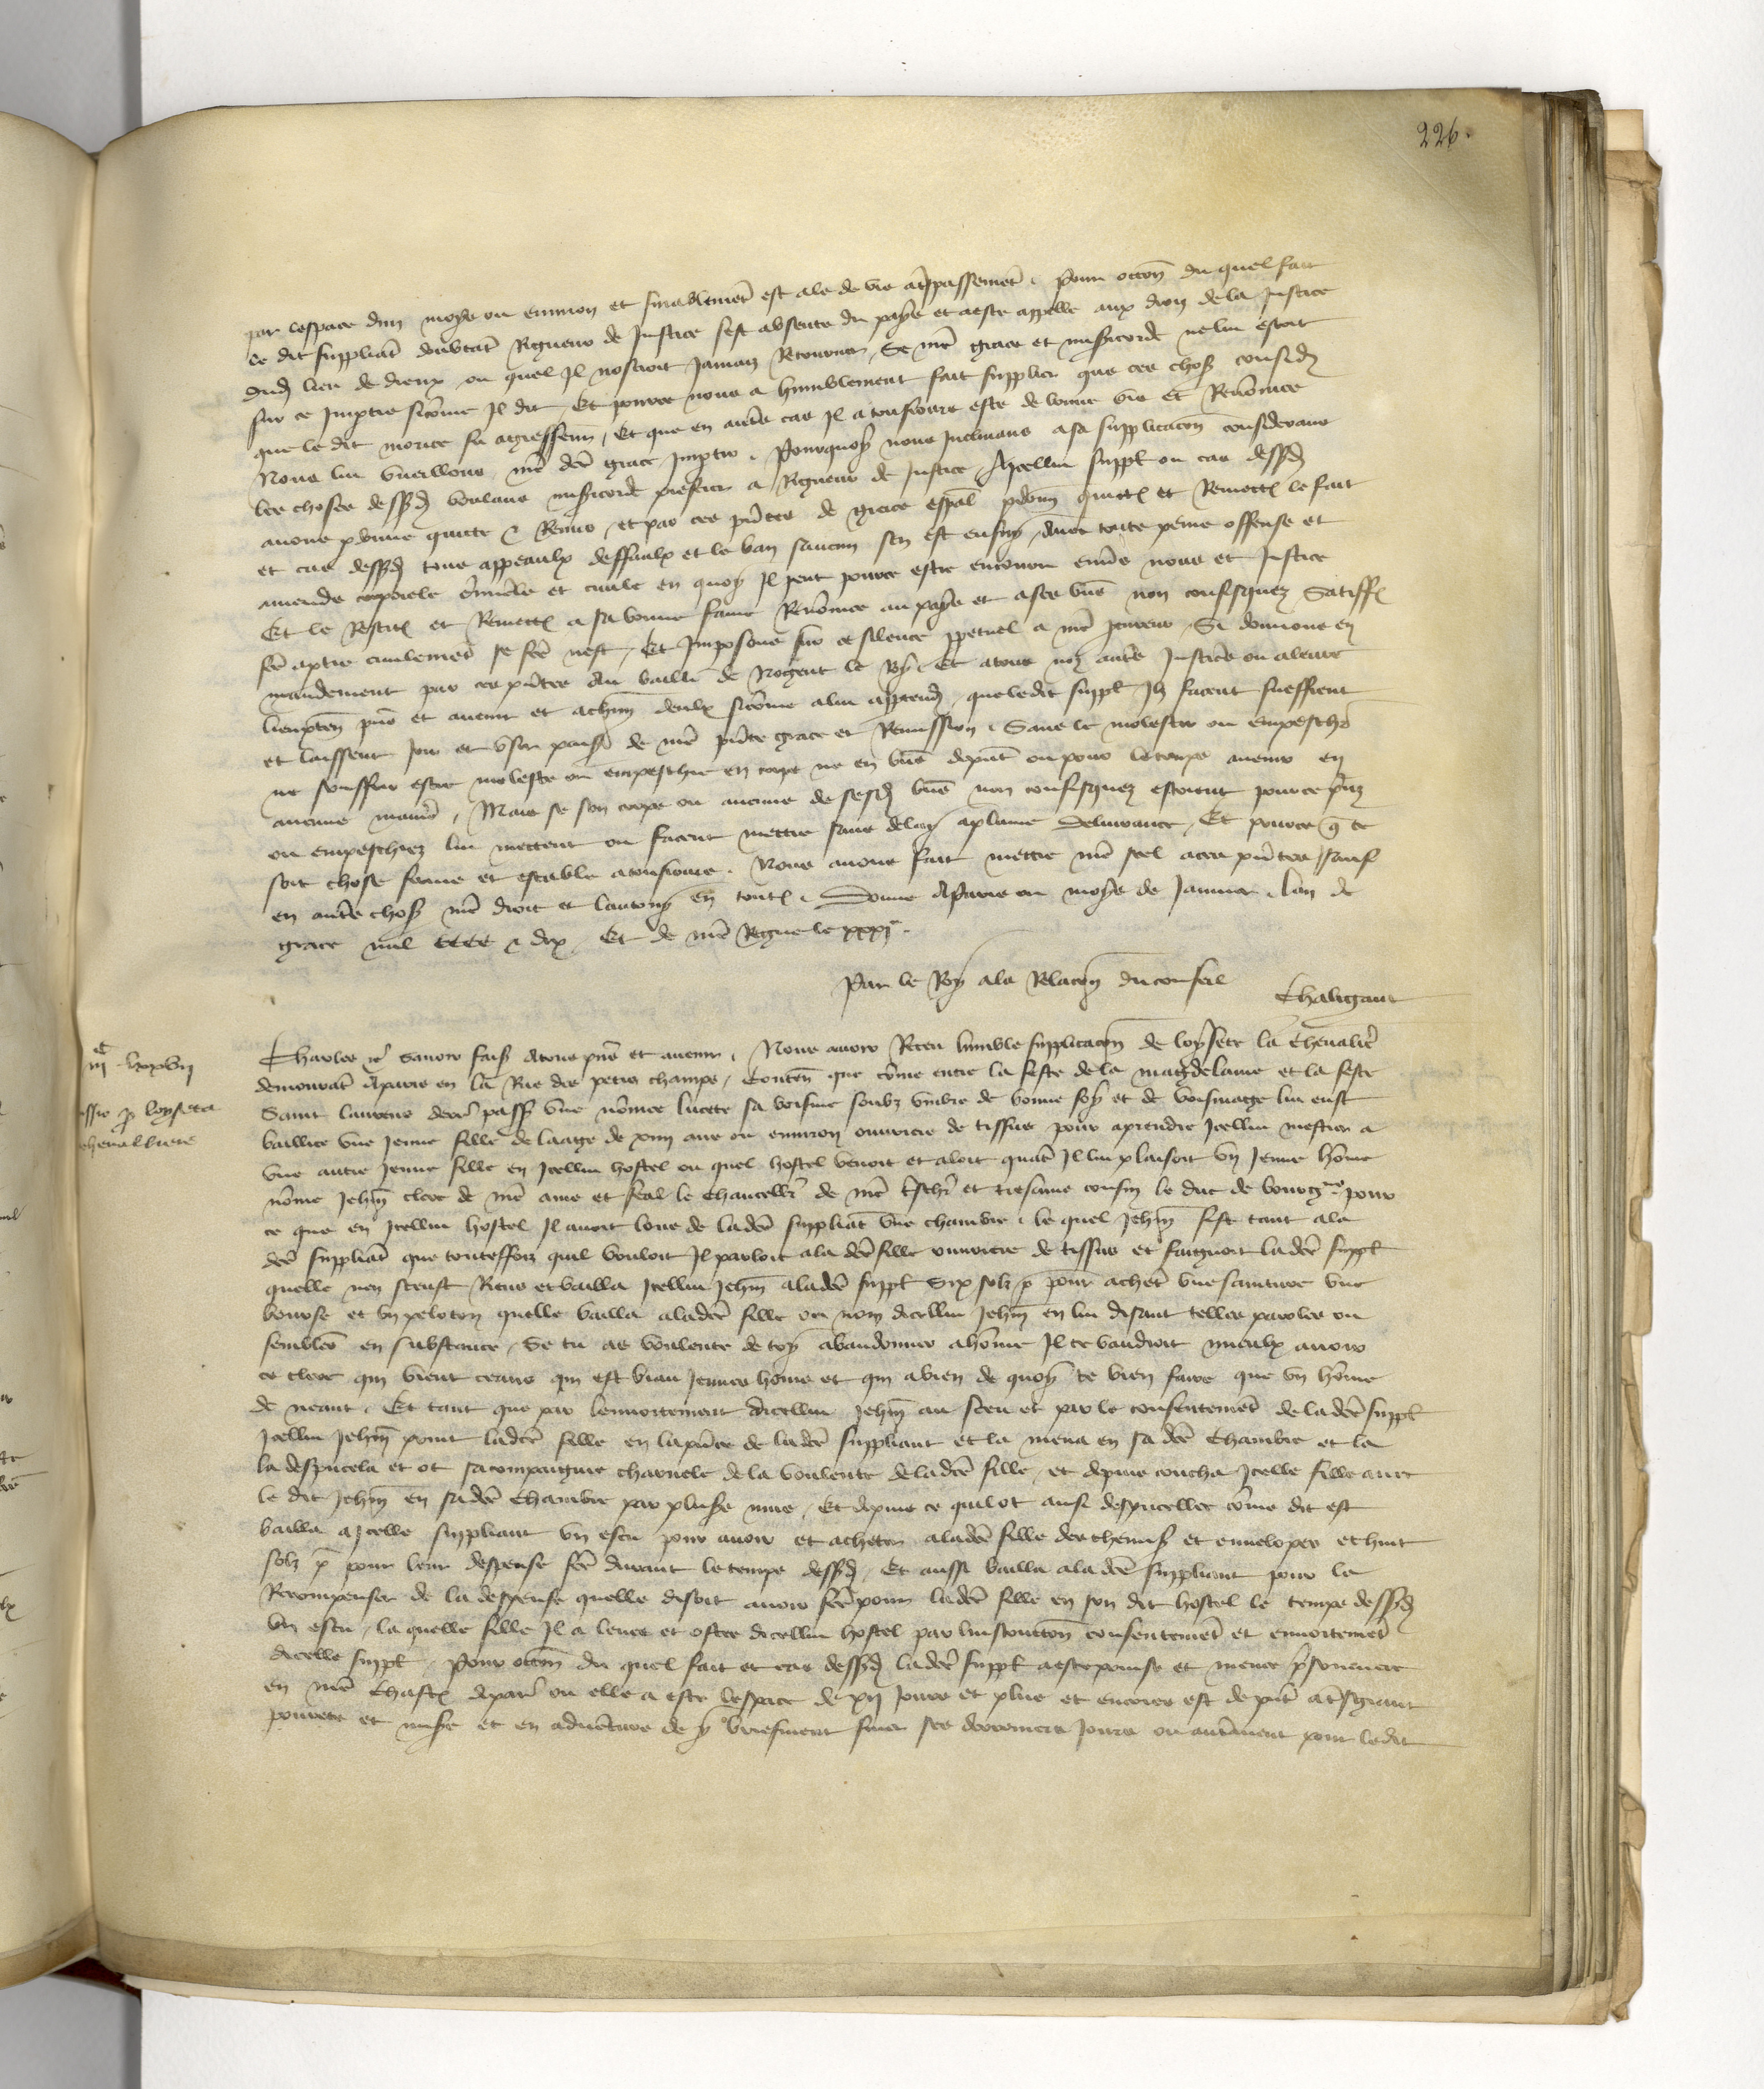 226.
par lespace dun moys ou environ et finablemēt est ale de vie a trpassemēt . Pour occōn du quel fait
le dit suppliāt doubtāt Rigueur de Justice sest absente du pays et a este appelle aux drois de la Justice
dud lieu de dreux ou quel Il noseroit Jamais Retourner , Se nrē grace et misericorde ne lui estoit
sur ce Imptie sicōme Il dit Et pource nous a humblement fait supplier que ces chos considr
que le dit morice fu agresseur , Et que en autrēs cas Il a tousiours este de bonne vie et Renōmee
Nous lui vueillons nrē dcē grace Imptir . Pourquoy nous Inclinans a sa supplicacōn considerans
les choses dessusd voulans misericorde preferer a Rigueur de Justice Aicellui suppl ou cas dessusd
avons pdonne quicte & Remis et par ces pntes de grace espāl pdonn quictt et Remectt le fait
et cas dessusd tous appeaulx deffaulx et le ban saucun sen est ensuy , Avec toute peine offense et
amende corporele criminele et civile en quoy Il peut pource estre encouru envers nous et Justice
Et le Restitt et Remectt a sa bonne fame Renōmee au pays et a ses biens non confisquez Satiffc
fcē a ptie civilemēt se fcē nest , Et Imposons sur ce silence ppetuel a nrē procureur , Si donnons en
mandement par ces pntes Au bailli de Nogent le Roy , Et a tous noz autrēs Justiciers ou a leurs
lieuxten pns et avenir et a chun deulx sicōme a lui apptendr , que le dit suppl Ilz facent seuffrent
et laissent Joir et user paisi de nrē pnte grace et Remission , Sans le molester ou empescher
ne souffrir estre moleste ou empeschie en corps ne en biens a pnt ou pour le temps avenir en
aucune manie , Mais se son corps ou aucuns de sesd biens non confisquez estoient pource prins
ou empeschiez lui mettent ou facent mettre sans delay a plaine Delivrance , Et pource q ce
soit chose ferme et estable a tousiours . Nous avons fait mettre nrē seel a ces pntes , sauf
en autrēs chos nrē droit et lautruy en toutt . Donne A Paris ou moys de Janvier . Lan de
grace mil CCCC & dix , Et de nrē Regne le xxxj.e
Par le Roy a la Relacōn du conseil
Chaligaut
Charles & Savoir fais A tous pns et avenir . Nous avoir Receu lumble supplicacōn de loysete la Chevalie
demourāt A paris en la Rue des petis champs , Conten que cōme entre la feste de la magdelaine et la feste
Saint laurens derr pass une nōmee lucete sa voisine soubz umbre de bonne foy et de voisinage lui eust
baillee une Jeune fille de laage de xiiii ans ou environ ouvriere de tissus pour aprendre Icellui mestier a
une autre Jeune fille en Icellui hostel ou quel hostel venoit et aloit quāt Il lui plaisoit un Jeune hōme
nōme Jehn clerc de nrē ame et feal le Chancellr de nrē treschr et tresame cousin le duc de bourgne pour
ce que en Icellui hostel Il avoit loue de ladcē suppliāt une chambre , le quel Jehn fist tant a la
dcē suppliāt que touteffoiz quil vouloit Il parloit a la dcē fille ouvriere de tissus et faignoit ladcē suppl
quelle nen sceust Riens et bailla Icellui Jehn a ladcē suppl Six solz p pour acheter une sainture une
bourse et un peloton quelle bailla a ladcē fille ou nom dicellui Jehn en lui disant telles paroles ou
semblēs en substance , Se tu as voulente de toy abandonner a hōme Il te vauldroit mieulx avoir
ce clerc qui vient ceans qui est biau Jeunes homs et qui a bien de quoy te bien faire que un hōme
de neant . Et tant que par lennortement dicellui Jehn au sceu et par le consentemēt de ladcē suppl
Icellui Jehn print ladcē fille en la pnce de ladcē suppliant et la mena en sa dcē chambre et la
la despucela et ot sa compaignie charnele de la voulente de ladcē fille , et depuis coucha Icelle fille avec
le dit Jehn en sa dcē Chambre par plusrs nuis , Et depuis ce quil ot ainsi despucellee cōme dit est
bailla a Icelle suppliant un escu pour avoir et acheter a ladcē fille des chemis et enveloppes et huit
solz p pour leur despense fcē durant le temps dessusd , Et aussi bailla a la dcē suppliant pour la
Recompenser de la despense quelle disoit avoir fcē pour ladcē fille en son dit hostel le temps dessusd
un escu , la quelle fille Il a levee et ostee dicellui hostel par linstruction consentemēt et ennortemēt
dicelle suppl , Pour occōn du quel fait et cas dessusd ladcē suppl a este prinse et menee prisonniere
en nrē Chastt de par ou elle a este lespace de xij Jours et plus et encores est de pnt a tresgrant
povrete et mise et en adventure de y briefment finer ses derreniers Jours ou autrement pour ledit
iij.C iiijxxvij
Remissio p loysete
chevalliere